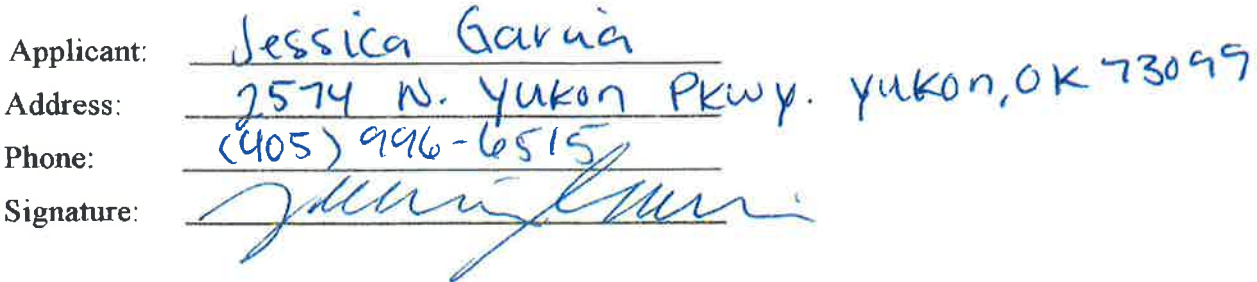 Applicant: Jessica Garcia
Address: 2574 N. Yukon Pkwy. Yukon, OK 73099
Phone: (405) 996-6515
Signature: